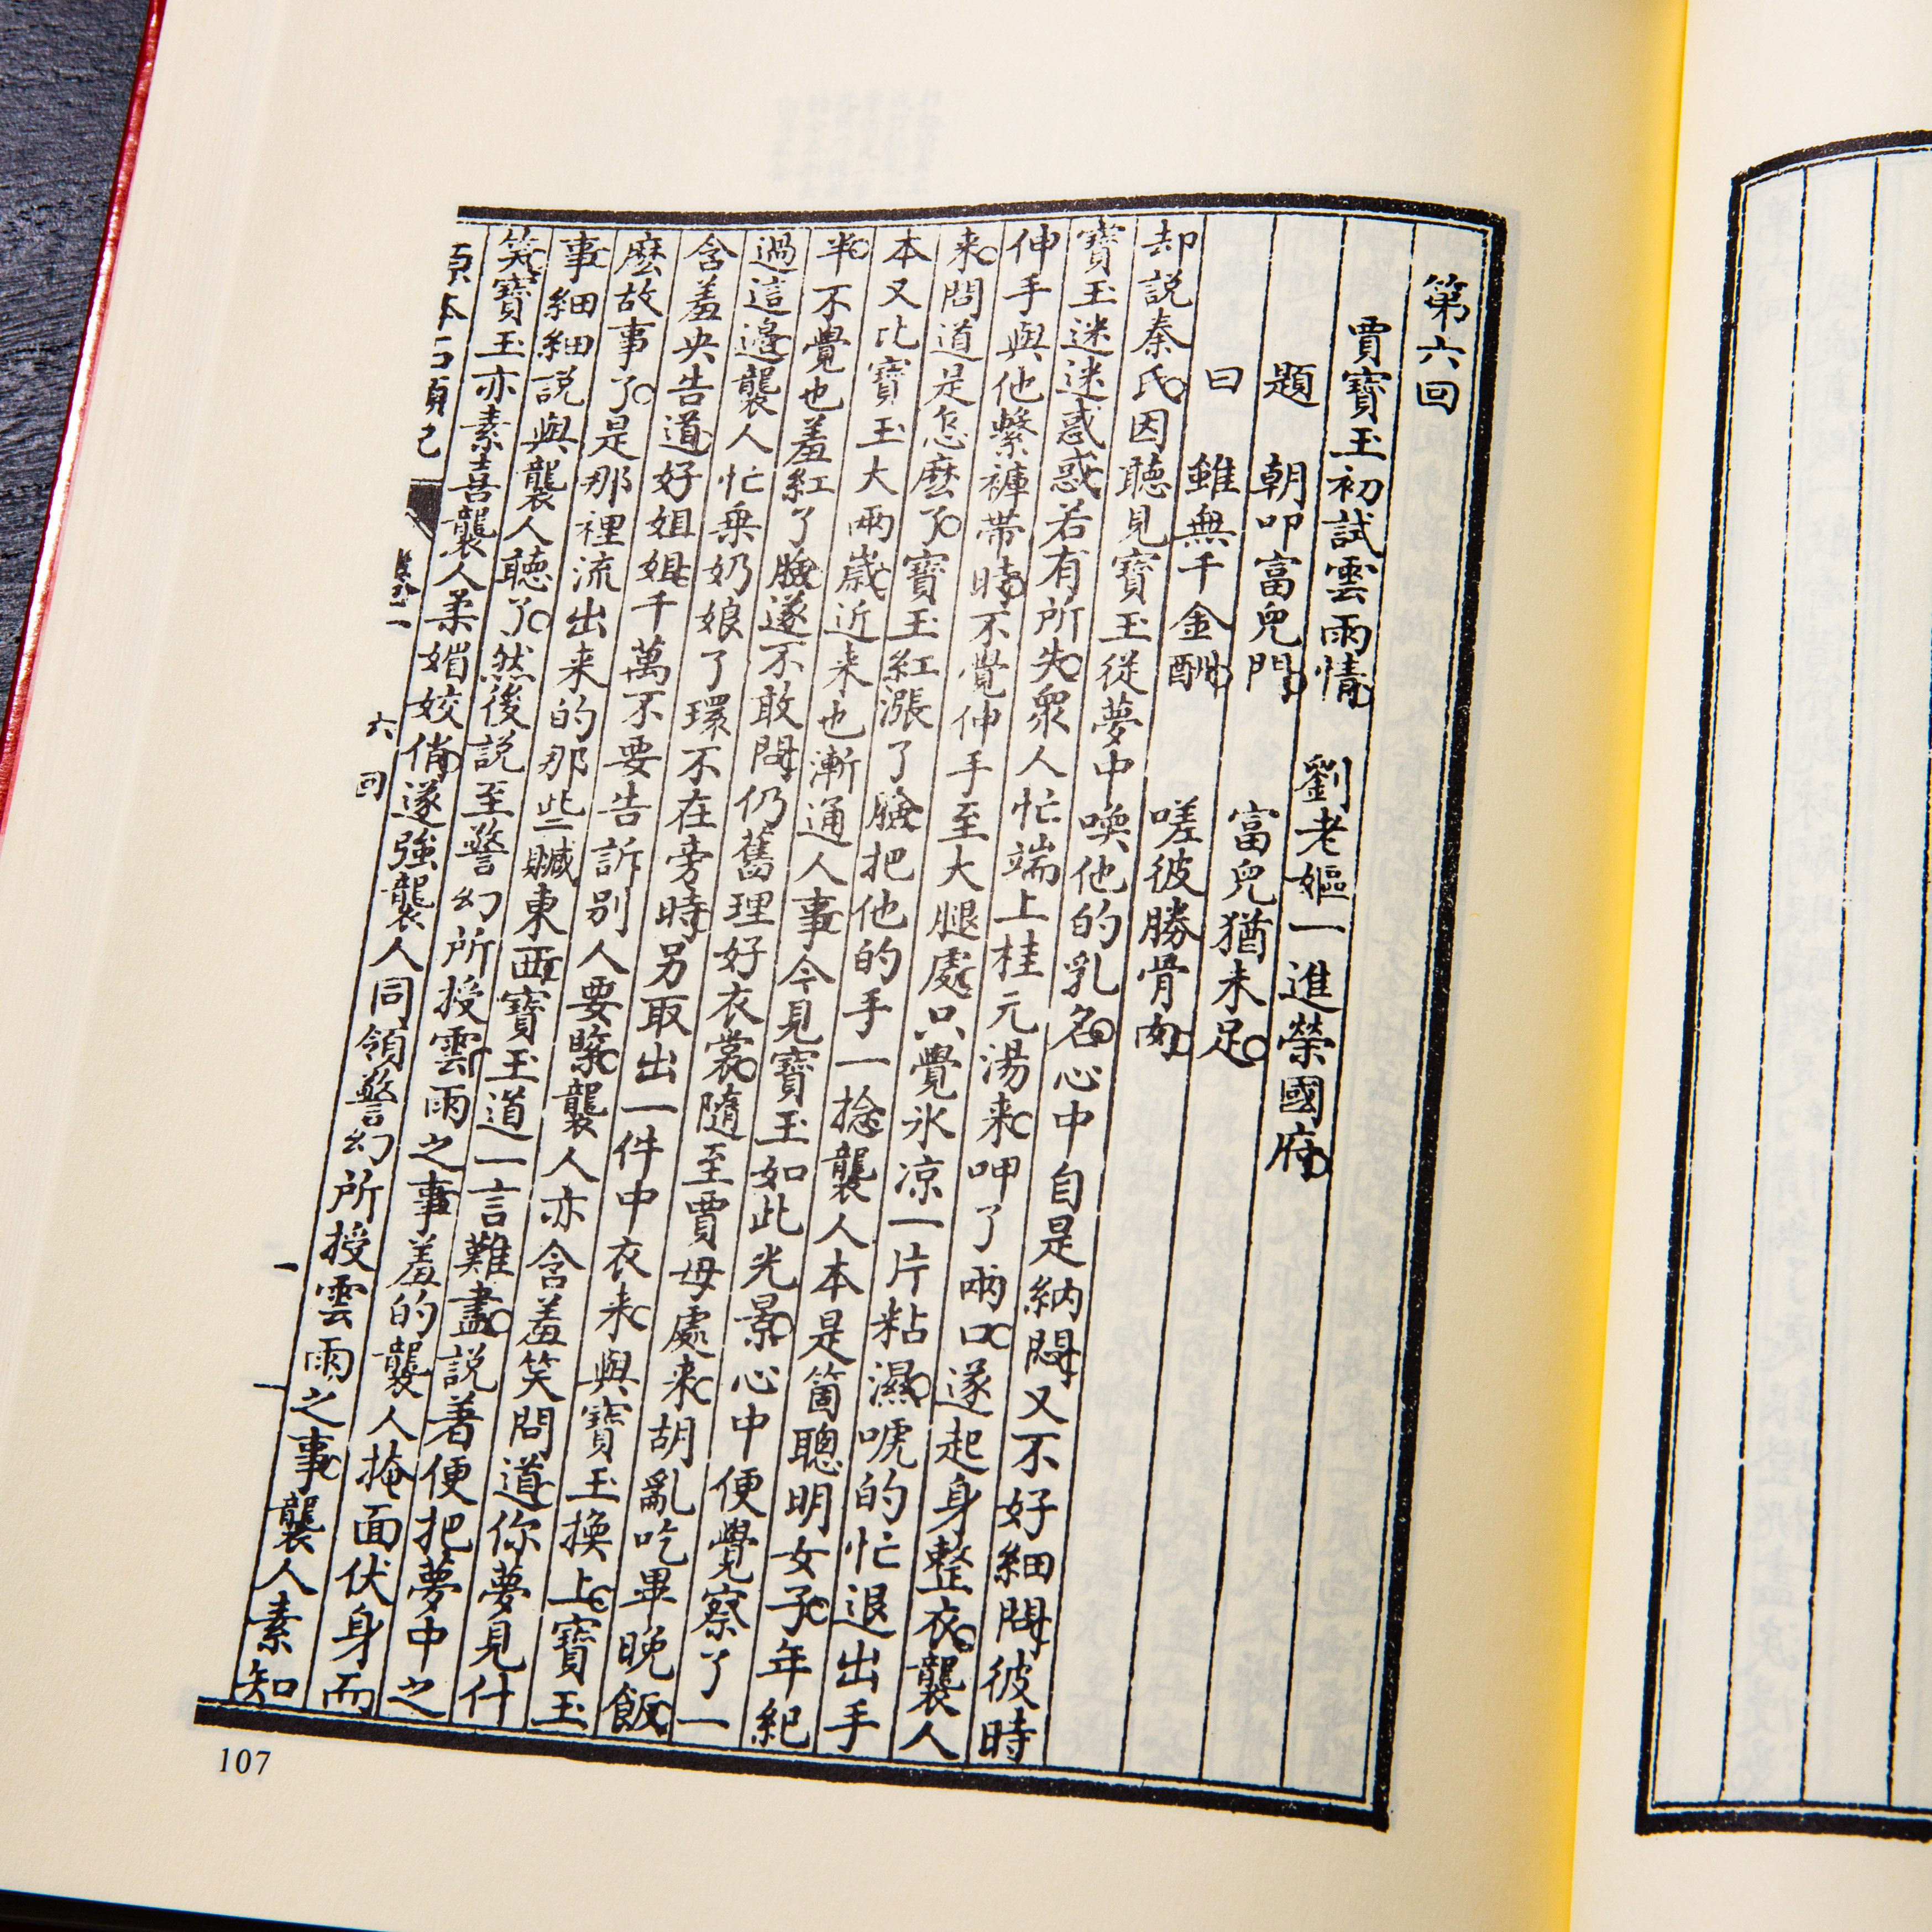 第六回
賈寶玉初試雲雨情 劉老嫗一進榮國府
題 朝叩富兒門 富兒猶未足
曰 雖無千金酬 嗟彼勝骨肉
却説秦氏因聽見寶玉從夢中喚他的乳名心中自是納悶又不好細問彼時
寶玉迷迷惑惑若有所失衆人忙端上桂元湯来呷了兩口遂起身整衣襲人
伸手與他繫褲帶時不覺伸手至大腿處只覺氷凉一片粘濕唬的忙退出手
来問道是怎麽了寶玉紅漲了臉把他的手一捻襲人本是箇聰明女子年紀
本又比寶玉大兩歲近来也漸通人事今見寶玉如此光景心中便覺察了一
半不覺也羞紅了臉遂不敢問仍舊理好衣裳隨至賈母處来胡亂吃畢晚飯
過這邊襲人忙乗奶娘了環不在旁時另取出一件中衣来與寶玉換上寶玉
含羞央告道好姐姐千萬不要告訴别人要緊襲人亦含羞笑問道你夢見什
麽故事了是那裡流出来的那些贓東西寶玉道一言難盡説着便把夢中之
事細細説與襲人聽了然後説至警幻所授雲雨之事羞的襲人掩面伏身而
笑寶玉亦素喜襲人柔媚姣俏遂強襲人同領警幻所授雲雨之事襲人素知
六回
一
107